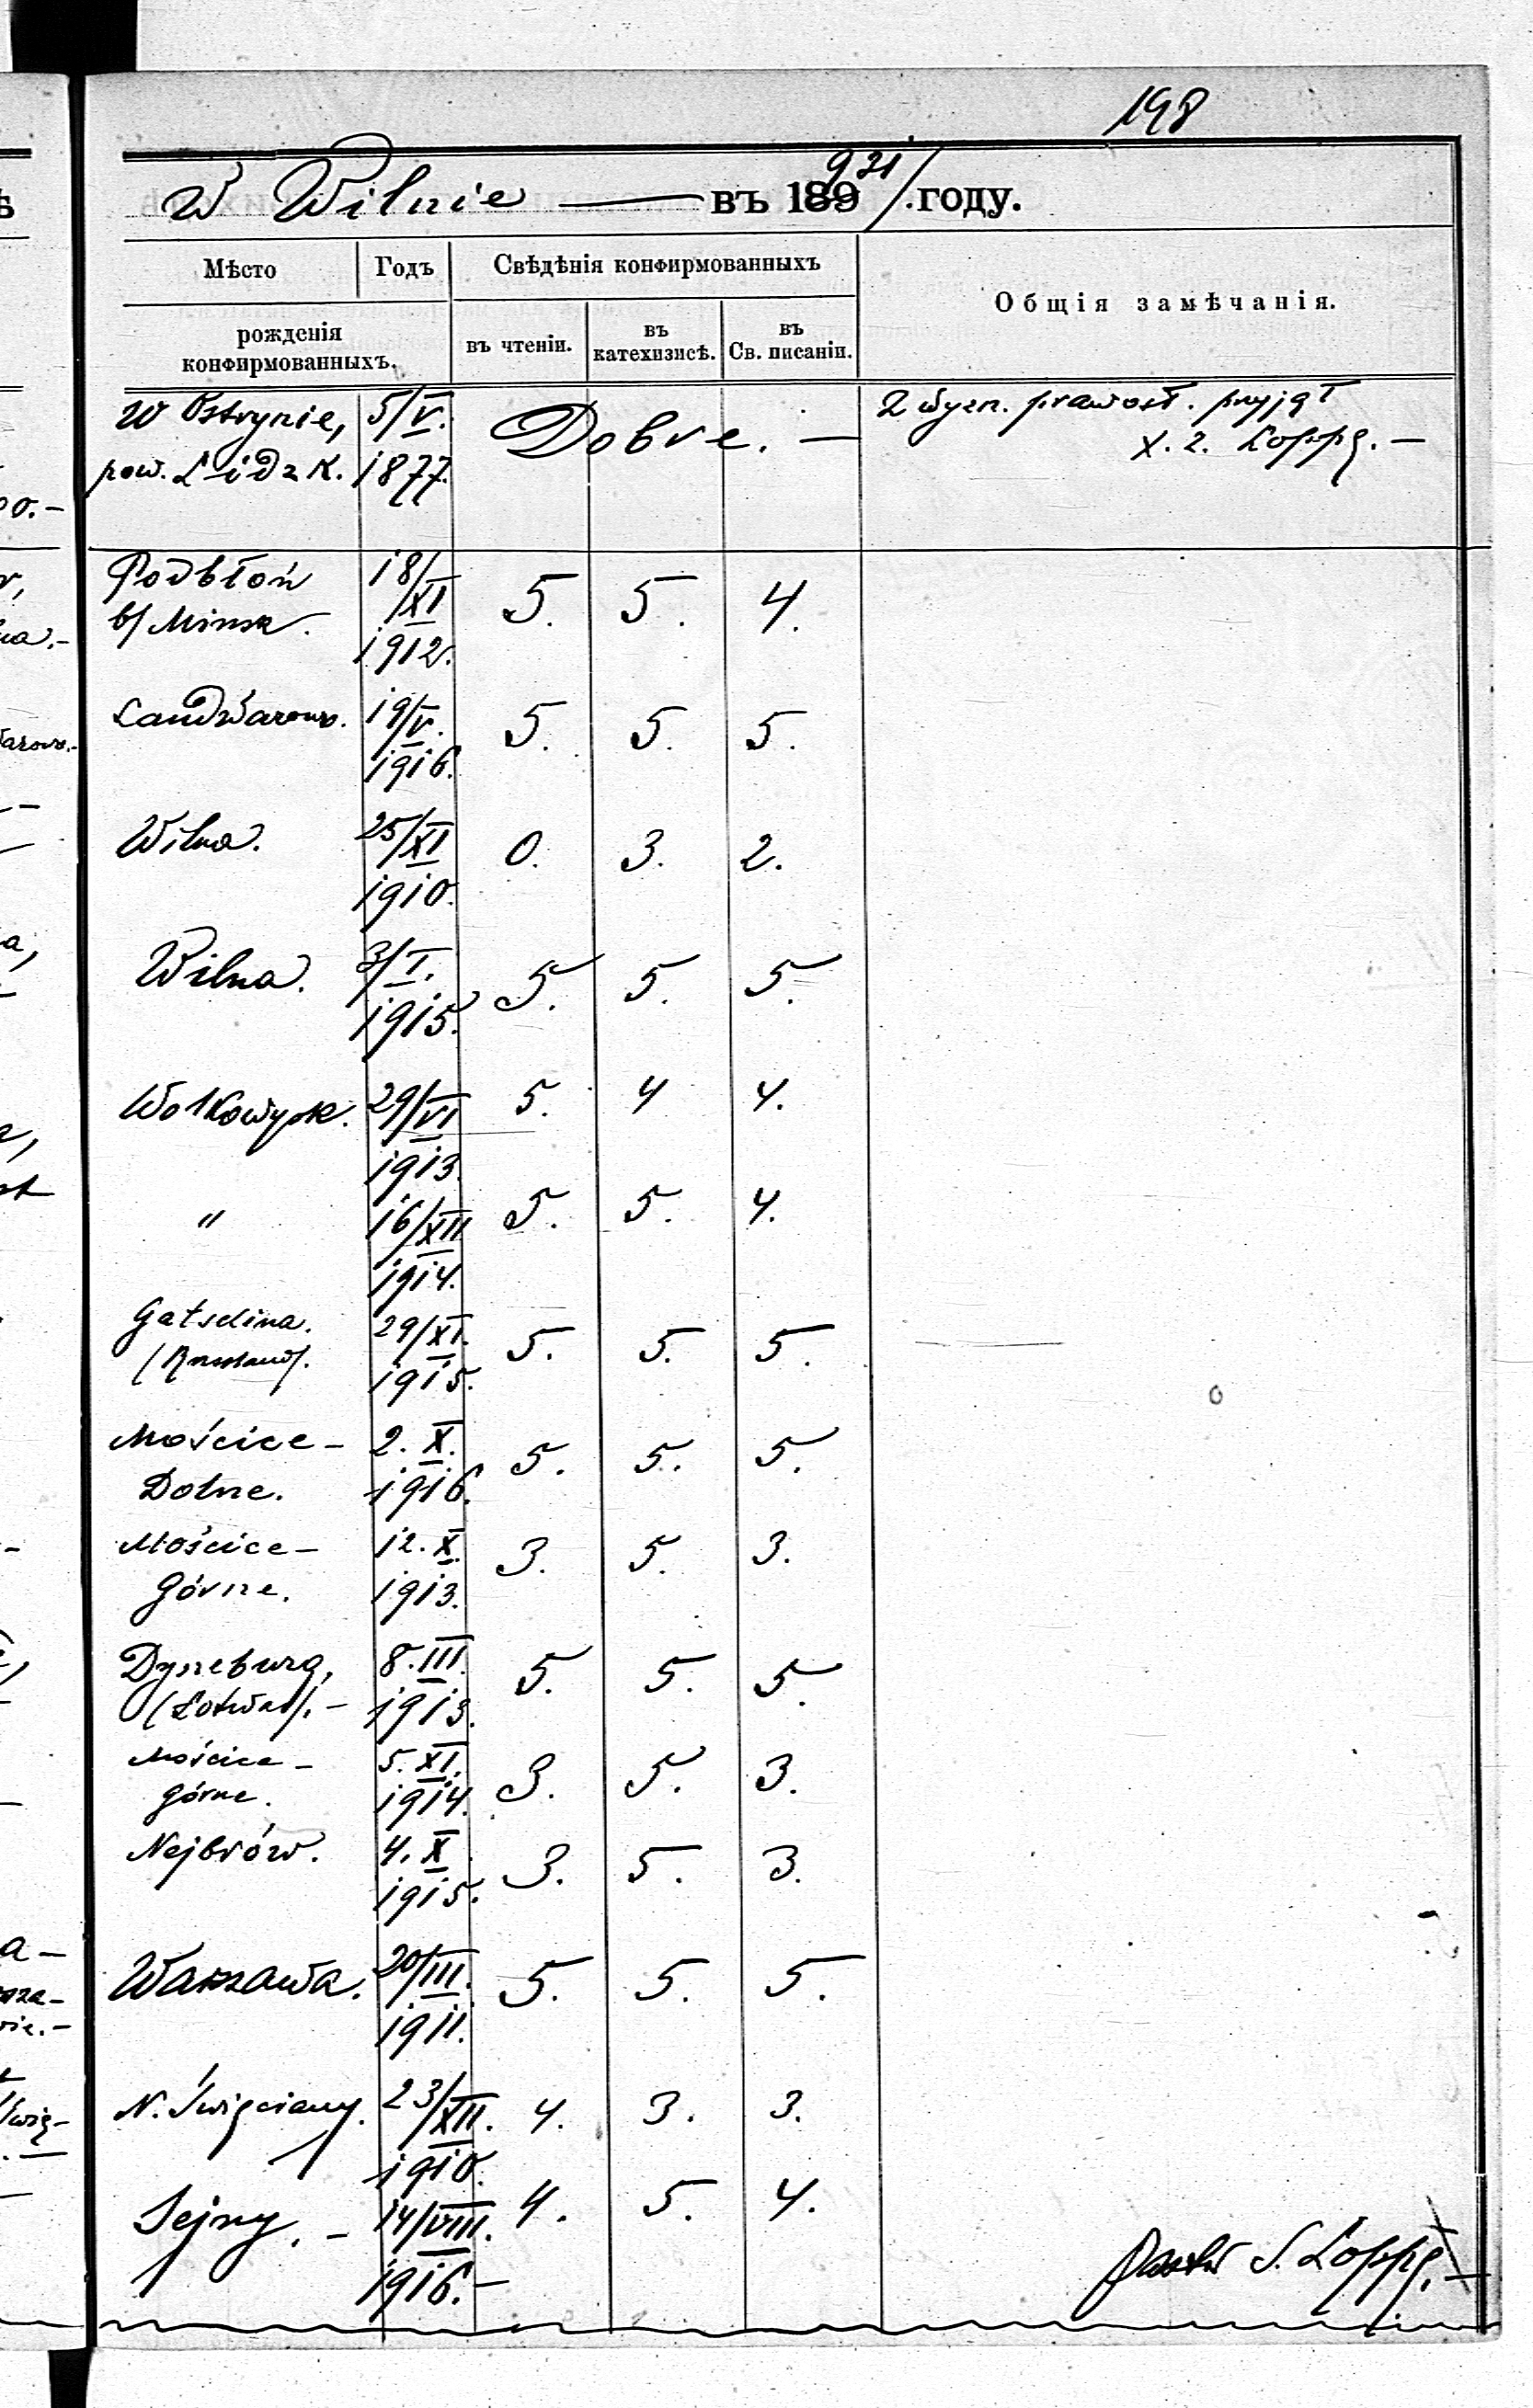 198
W Wilnie — въ 189 931/ году.
Мѣсто Годъ Свѣдѣнія конфирмованныхъ Общія замѣчанія.
рожденія конфирмованныхъ. въ чтеніи. въ катехизисѣ. въ Св. писаніи.
W Ostrynie, 5/V. Dobre. — Z wyzn. prawosł. przyjął
pow. Lidzk. 1877. X. Z. Loppe. —
Podbłoń 18/XI 5. 5. 4.
b/ Minsk. 1912.
Landwarow. 19/V. 5. 5. 5.
1916.
Wilna. 25/XI 0. 3. 2.
1910.
Wilna. 3/I. 5. 5. 5.
1915.
Wolkowysk. 29/VI 5. 4 4.
1913.
" 16/XII 5. 5. 4.
1914.
Gatschina. 29/XI. 5. 5. 5.
/Russland/. 1915.
Mościce – 2. X. 5. 5. 5.
Dolne. 1916.
Mościce – 12. X. 3. 5. 3.
Górne. 1913.
Dyneburg, 8. III. 5. 5. 5.
/Łotwa/. – 1913.
Mościce – 5. XI. 3. 5. 3.
Górne. 1914.
Nejbrów. 4. X. 3. 5. 3.
1915.
Warszawa. 20/III. 5. 5. 5.
1911.
N. Święciany. 23/XII. 4. 3. 3.
1910.
Sejny. – 14/VIII. 4. 5. 4.
1916. –
Pastor S. Loppe. —